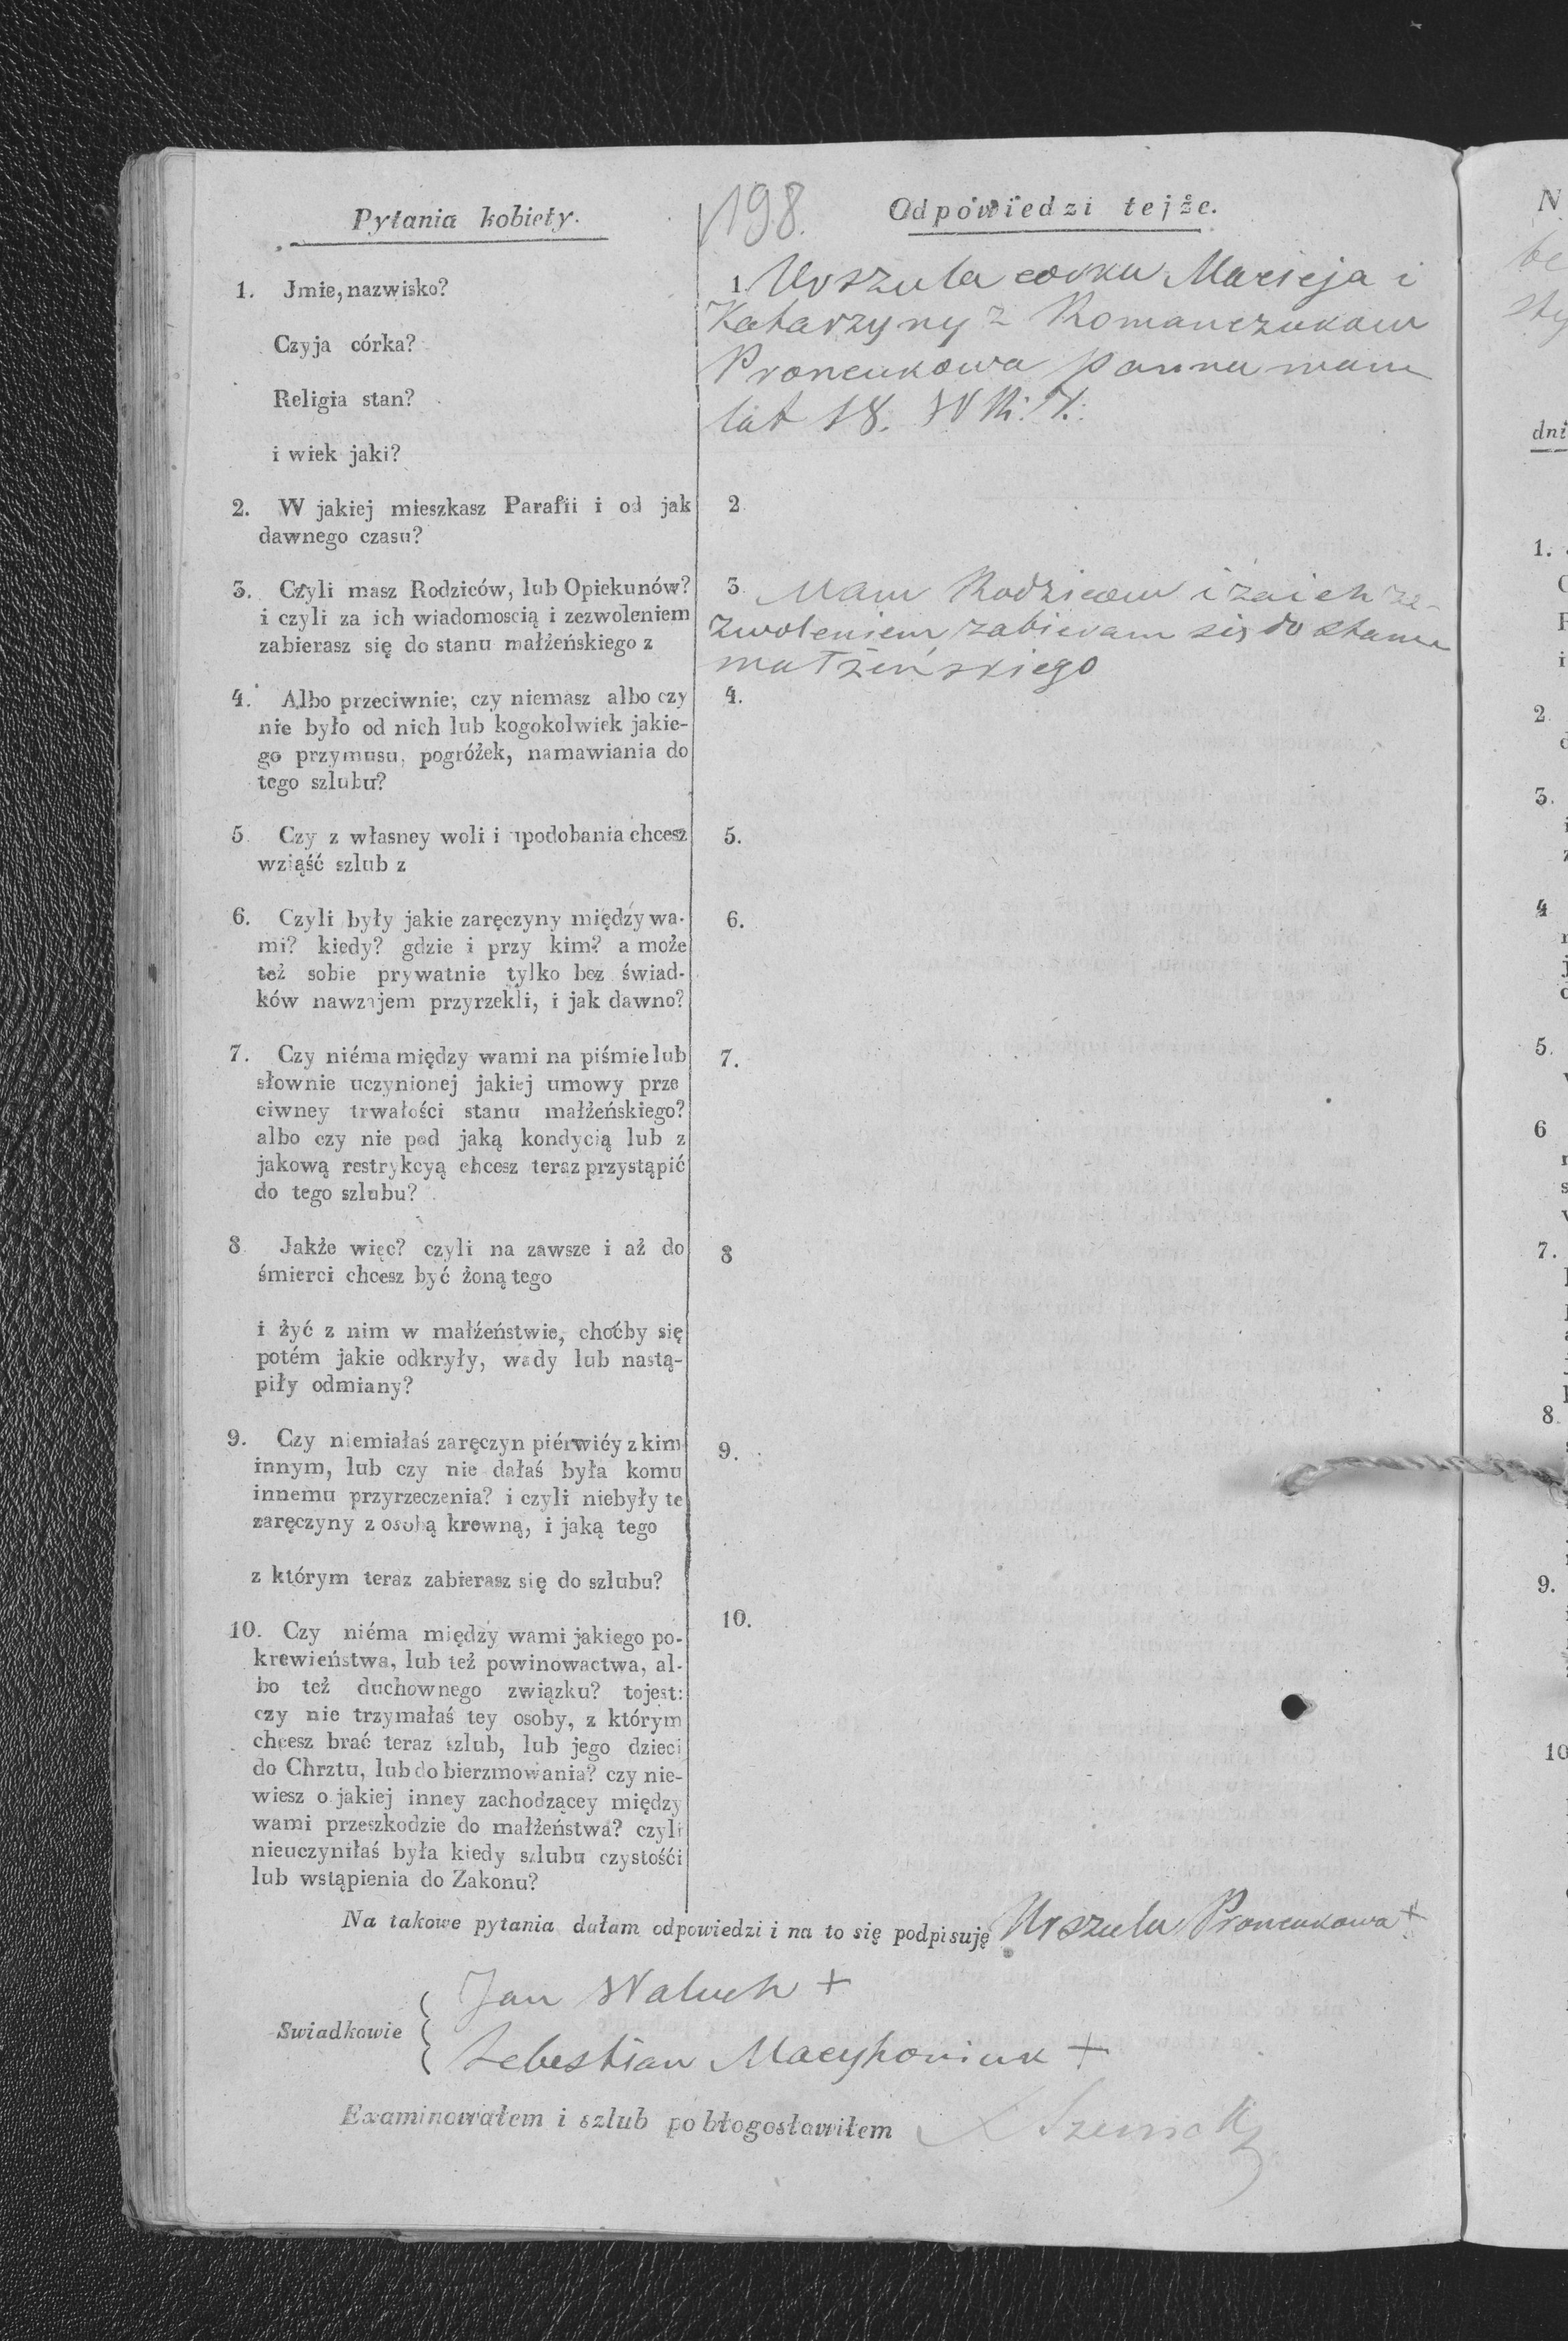 Pytania kobiety.
198.
Odpowiedzi tejże.
1. Jmie, nazwisko?
Czyja córka?
Religia stan?
i wiek jaki?
1. Urszula corka Macieja i
Katarzyny z Romanczukow
Proneukowa panna mam
lat 18. W R:
2. W jakiej mieszkasz Parafii i od jak
dawnego czasu?
2
3. Czyli masz Rodziców, lub Opiekunów?
i czyli za ich wiadomoscią i zezwoleniem
zabierasz się do stanu małżeńskiego z
3. Mam Rodzicow i za ich ze-
zwoleniem zabieram się do stanu
małżeńskiego
4. Albo przeciwnie; czy niemasz albo czy
nie było od nich lub kogokolwiek jakie-
go przymusu, pogróżek, namawiania do
tego szlubu?
4.
5. Czy z własney woli i upodobania chcesz
wziąść szlub z
5.
6. Czyli były jakie zaręczyny między wa-
mi? kiedy? gdzie i przy kim? a może
też sobie prywatnie tylko bez świad-
ków nawzajem przyrzekli, i jak dawno?
6.
7. Czy niéma między wami na piśmie lub
słownie uczynionej jakiej umowy prze
ciwney trwałości stanu małżeńskiego?
albo czy nie pod jaką kondycią lub z
jakową restrykcyą chcesz teraz przystąpić
do tego szlubu?
7.
8. Jakże więc? czyli na zawsze i aż do
śmierci chcesz być żoną tego
i żyć z nim w małżeństwie, choćby się
potém jakie odkryły, wady lub nastą-
piły odmiany?
8
9. Czy niemiałaś zaręczyn piérwiéy z kim
innym, lub czy nie dałaś była komu
innemu przyrzeczenia? i czyli niebyły te
zaręczyny z osobą krewną, i jaką tego
z którym teraz zabierasz się do szlubu?
9.
10. Czy niéma między wami jakiego po-
krewieństwa, lub też powinowactwa, al-
bo też duchownego związku? tojest:
czy nie trzymałaś tey osoby, z którym
chcesz brać teraz szlub, lub jego dzieci
do Chrztu, lub do bierzmowania? czy nie-
wiesz o jakiej inney zachodzącey między
wami przeszkodzie do małżeństwa? czyli
nieuczyniłaś była kiedy szlubu czystośći
lub wstąpienia do Zakonu?
10.
Na takowe pytania dałam odpowiedzi i na to się podpisuję Urszula Proneukowa +
Swiadkowie
Jan Waluch +
Sebestian Macyhoniuk +
Examinowałem i szlub pobłogosławiłem
N
dni
1.
2
3.
4
5.
6
7.
8.
9.
10